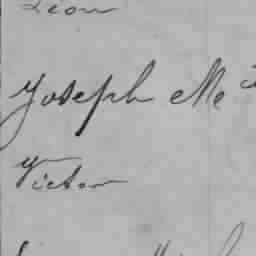 Leon
Joseph Me
Victor